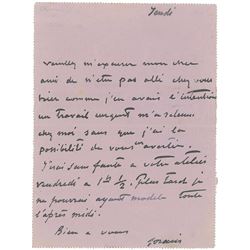 Jeudi
veuillez m'excuser mon cher
ami de n'etre pas allé chez vous
hier comme j'en avais l'intention
un travail urgent m'a retenu
chez moi sans que j'ai la
possibilité de vous avertir.
J'irai sans faute a votre atelier
vendredi a 1h 1/2. Plus tard je
ne pourrai ayant modele toute
l'après midi.
Bien a vous